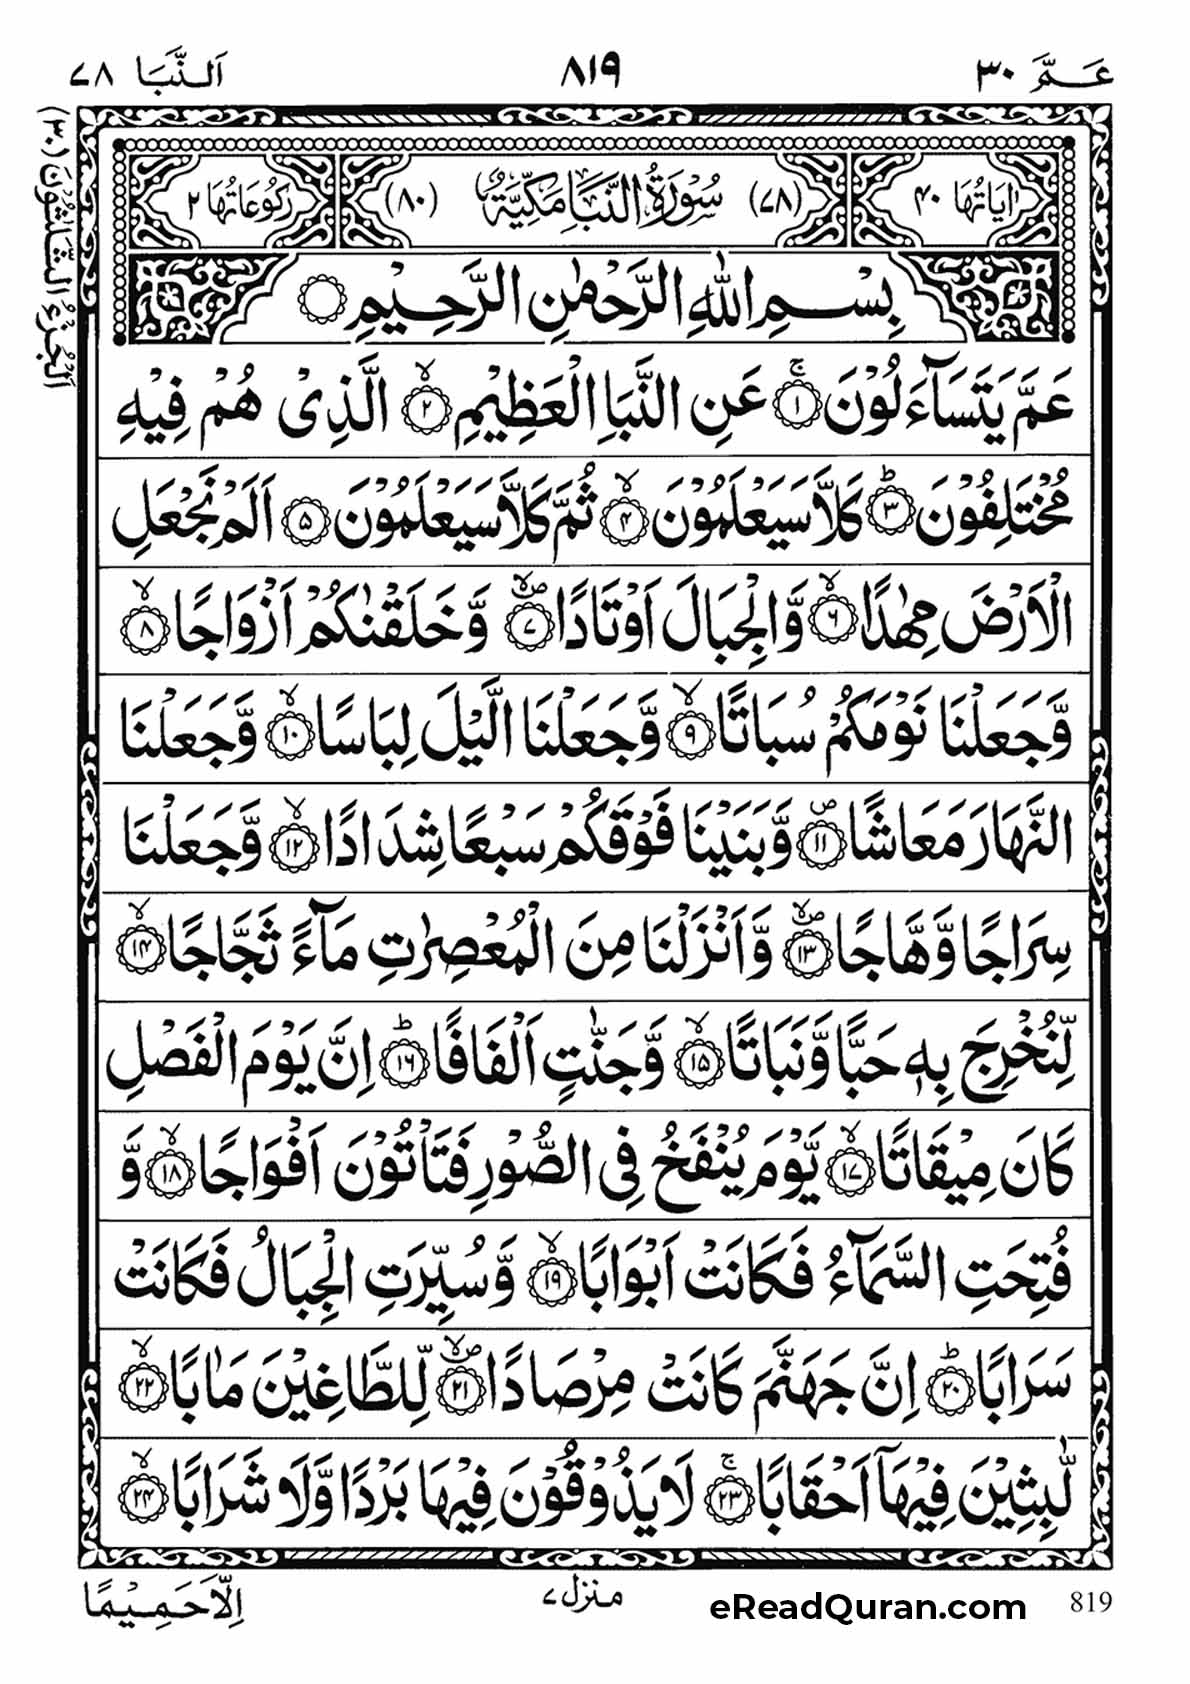 عَـمَّ ٣٠
٨١٩
اَلنَّبَا ٧٨
اٰيَاتُهَا ٤٠
(٧٨) سُوْرَةُ النَّبَاِ مَكِّيَّةٌ (٨٠)
رُكُوْعَاتُهَا ٢
اَلْجُزْءُ الثَّلَاثُوْنَ (٣٠)
بِسْمِ اللّٰهِ الرَّحْمٰنِ الرَّحِيْمِ
عَمَّ يَتَسَآءَلُوْنَ ۚ﴿١﴾ عَنِ النَّبَاِ الْعَظِيْمِ ۙ﴿٢﴾ الَّذِىْ هُمْ فِيْهِ
مُخْتَلِفُوْنَ ؕ﴿٣﴾ كَلَّا سَيَعْلَمُوْنَ ۙ﴿٤﴾ ثُمَّ كَلَّا سَيَعْلَمُوْنَ ﴿٥﴾ اَلَمْ نَجْعَلِ
الْاَرْضَ مِهٰدًا ۙ﴿٦﴾ وَّالْجِبَالَ اَوْتَادًا ۪ۙ﴿٧﴾ وَّخَلَقْنٰكُمْ اَزْوَاجًا ۙ﴿٨﴾
وَّجَعَلْنَا نَوْمَكُمْ سُبَاتًا ۙ﴿٩﴾ وَّجَعَلْنَا الَّيْلَ لِبَاسًا ۙ﴿١٠﴾ وَّجَعَلْنَا
النَّهَارَ مَعَاشًا ۪﴿١١﴾ وَّبَنَيْنَا فَوْقَكُمْ سَبْعًا شِدَادًا ۙ﴿١٢﴾ وَّجَعَلْنَا
سِرَاجًا وَّهَّاجًا ۪ۙ﴿١٣﴾ وَّاَنْزَلْنَا مِنَ الْمُعْصِرٰتِ مَآءً ثَجَّاجًا ۙ﴿١٤﴾
لِّنُخْرِجَ بِهٖ حَبًّا وَّنَبَاتًا ۙ﴿١٥﴾ وَّجَنّٰتٍ اَلْفَافًا ؕ﴿١٦﴾ اِنَّ يَوْمَ الْفَصْلِ
كَانَ مِيْقَاتًا ۙ﴿١٧﴾ يَّوْمَ يُنْفَخُ فِى الصُّوْرِ فَتَاْتُوْنَ اَفْوَاجًا ۙ﴿١٨﴾ وَّ
فُتِحَتِ السَّمَآءُ فَكَانَتْ اَبْوَابًا ۙ﴿١٩﴾ وَّسُيِّرَتِ الْجِبَالُ فَكَانَتْ
سَرَابًا ؕ﴿٢٠﴾ اِنَّ جَهَنَّمَ كَانَتْ مِرْصَادًا ۪ۙ﴿٢١﴾ لِّلطَّاغِيْنَ مَاٰبًا ۙ﴿٢٢﴾
لّٰبِثِيْنَ فِيْهَآ اَحْقَابًا ۚ﴿٢٣﴾ لَا يَذُوْقُوْنَ فِيْهَا بَرْدًا وَّلَا شَرَابًا ۙ﴿٢٤﴾
اِلَّا حَمِيْمًا
منزل ٧
eReadQuran.com
819